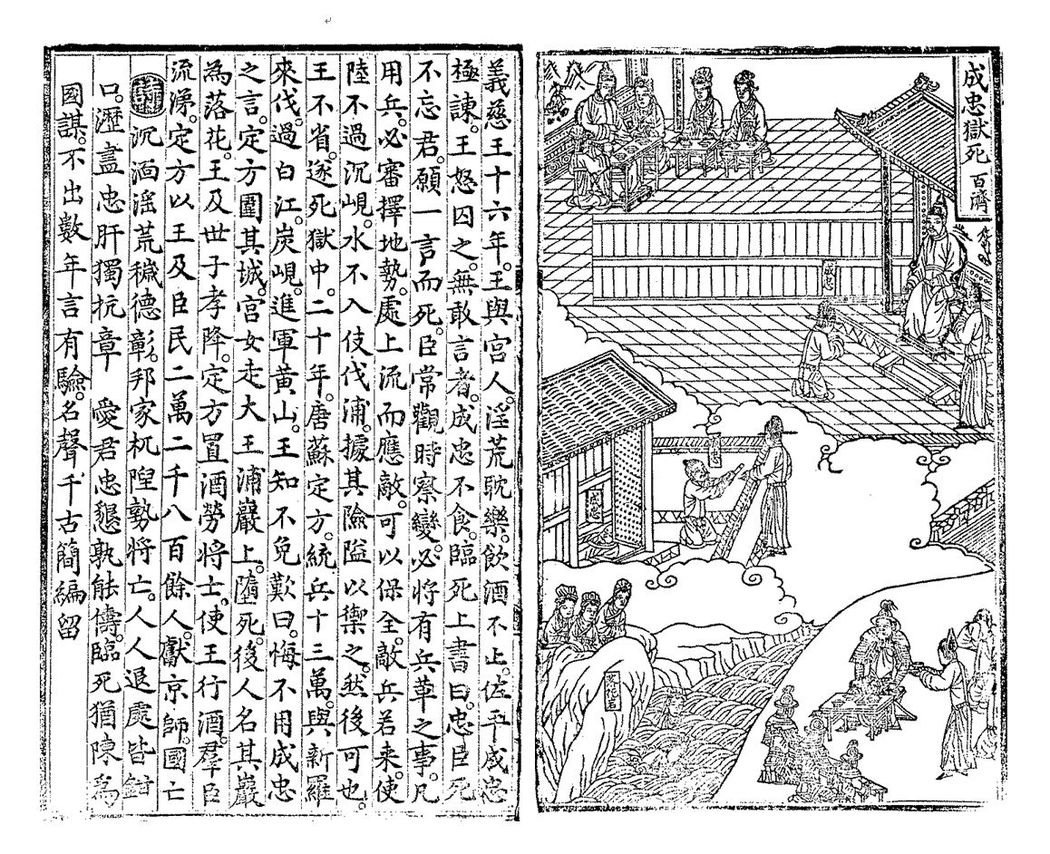 成忠獄死 百濟
成忠
義慈王十六年。王與宮人。淫荒耽樂。飲酒不止。佐平成忠
極諫。王怒囚之。無敢言者。成忠不食。臨死上書曰。忠臣死
不忘君。願一言而死。臣常觀時察變。必將有兵革之事。凡
用兵。必審擇地勢。處上流而應敵。可以保全。敵兵若來。使
陸不過沉峴。水不入伎伐浦。據其險隘以禦之。然後可也。
王不省。遂死獄中。二十年。唐蘇定方。統兵十三萬。與新羅
來伐。過白江。炭峴。進軍黃山。王知不免歎曰。悔不用成忠
之言。定方圍其城。宮女走大王浦巖上。墮死。後人名其巖
為落花。王及世子孝降。定方置酒勞將士。使王行酒。群臣
流涕。定方以王及臣民二萬二千八百餘人。獻京師。國亡
詩 沉湎滛荒穢德彰。邦家杌隉勢將亡。人人退處皆鉗
口。瀝盡忠肝獨抗章 愛君忠懇孰能儔。臨死猶陳為
國謀。不出數年言有驗。名聲千古簡編留